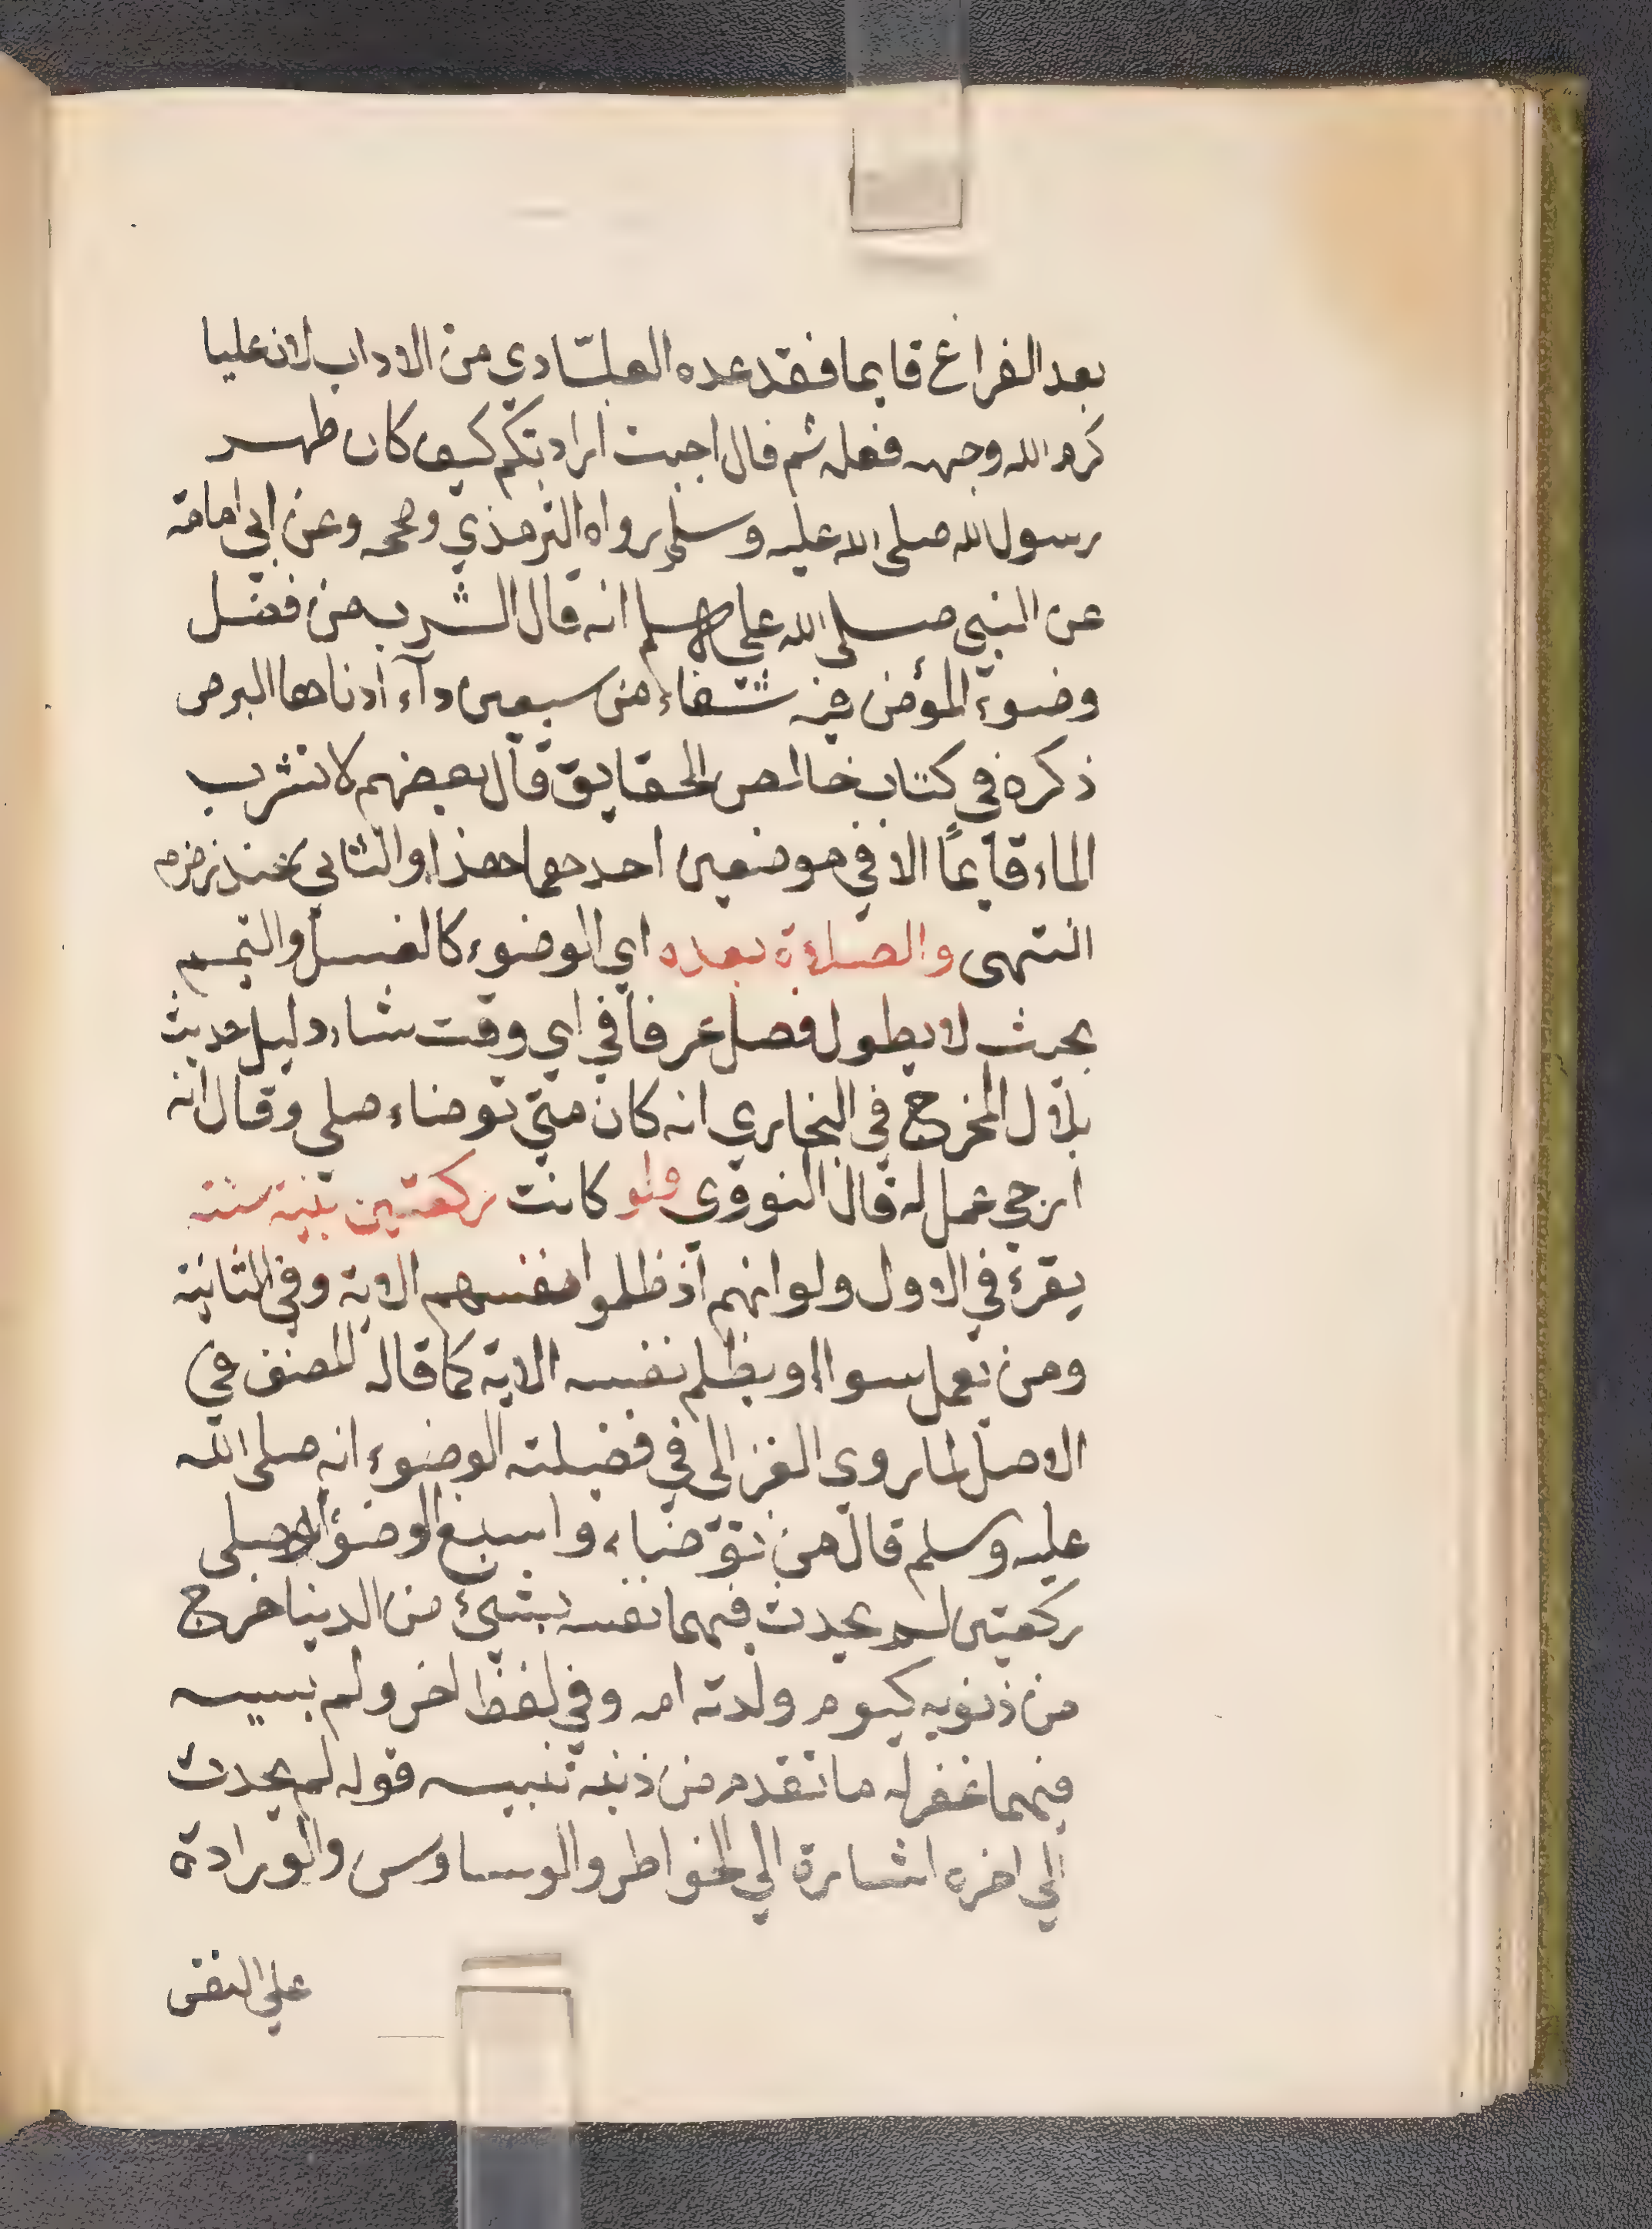 بعد الفراغ قايما فقد عده العبّادي من الاداب لان عليا
كرم الله وجهه فعله ثم قال اجبت اراد بتكم كيف كان طهر
رسول الله صلى الله عليه وسلم رواه الترمذي وصححه وعن ابي امامة
عن النبي صلى الله عليه وسلم انه قال الشرب من فضل
وضوء المؤمن فيه شفاء من سبعين دآء ادناها البرص
ذكره في كتاب خالص الحقايق قال بعضهم لا تشرب
الماء قايمًا الا في موضعين احدهما هذا والثاني عند زمزم
انتهى والصلاة بعده اي الوضوء كالغسل والتيمم
بحيث لا يطول فصل عرفا في اي وقت شاء دليل حديث
بلال المخرج في البخاري انه كان متي توضاء صلي وقال انه
ارجي عمل له قال النووي ولو كانت ركعتين بنية سنته
يقرء في الاول ولو انهم اذ ظلموا انفسهم الاية وفي الثانية
ومن يعمل سوءا او يظلم نفسه الاية كما قاله المصنف في
الاصل لما روي الغزالي في فضيلته الوضوء انه صلى الله
عليه وسلم قال من توّضاء واسبغ الوضوء وصلى
ركعتين لم يحدث فيهما نفسه بشيئ من الدنيا خرج
من ذنوبه كيوم ولدته امه وفي لفظ اخر ولم يسيه
فيهما غفر له ما تقدم من ذنبه تنبيه قوله لم يحدث
الي اخره اشارة الي الخواطر والوساوس والورادة
علي النفس